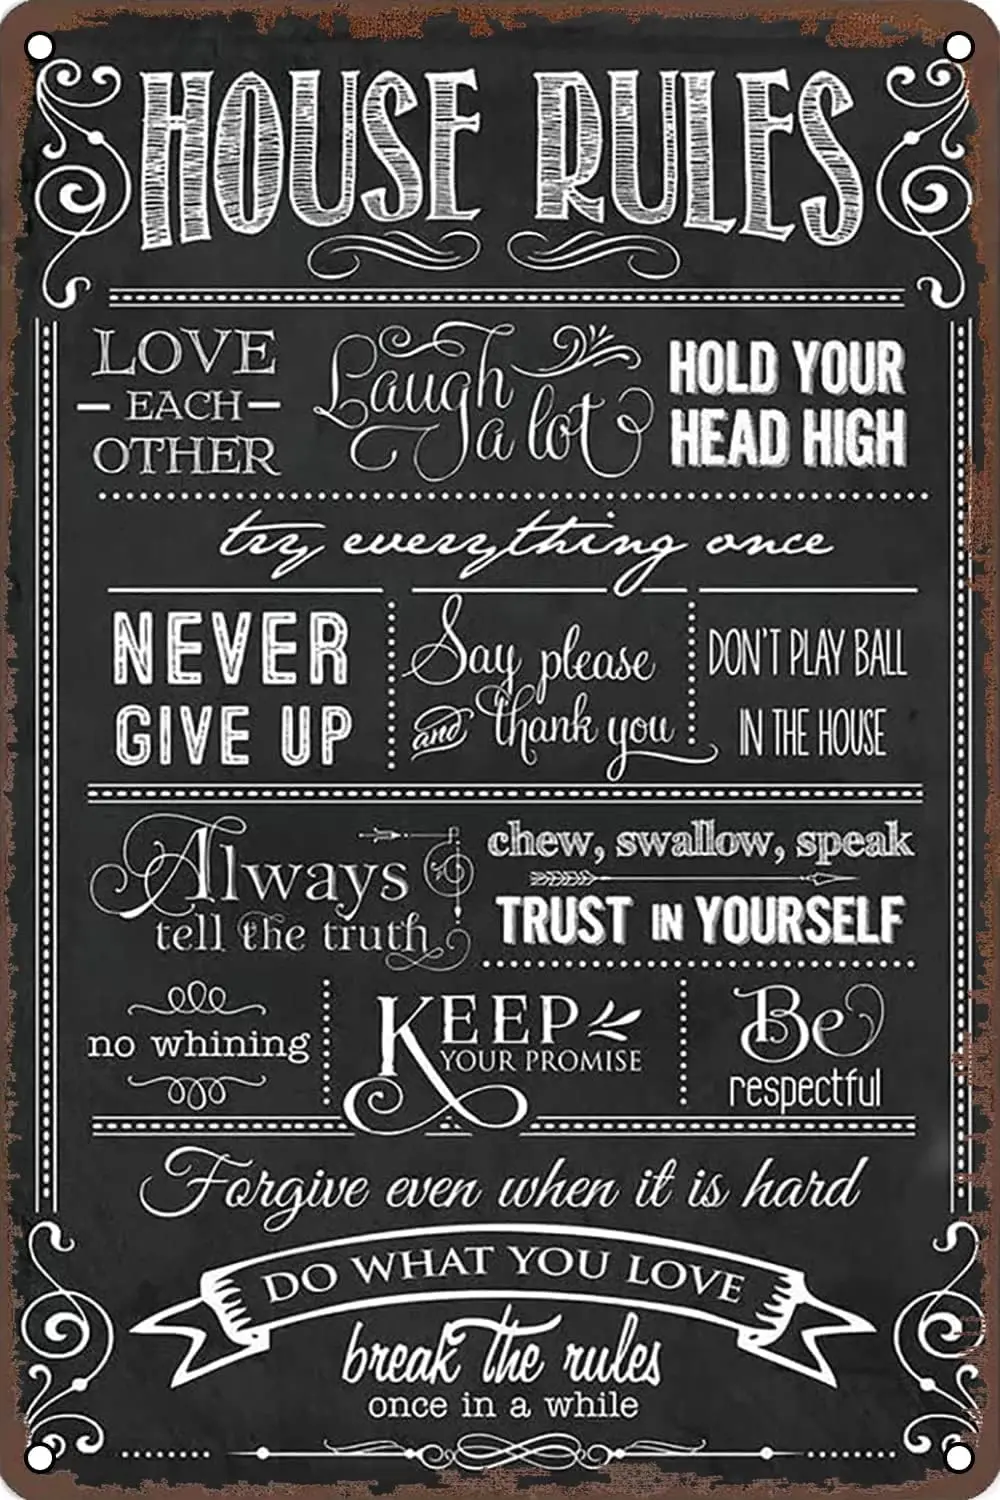 HOUSE RULES
LOVE
EACH
OTHER
Laugh
a lot
HOLD YOUR
HEAD HIGH
try everything once
NEVER
GIVE UP
Say please
and thank you
DON'T PLAY BALL
IN THE HOUSE
Always
tell the truth
chew, swallow, speak
TRUST IN YOURSELF
no whining
KEEP
YOUR PROMISE
Be
respectful
Forgive even when it is hard
DO WHAT YOU LOVE
break the rules
once in a while